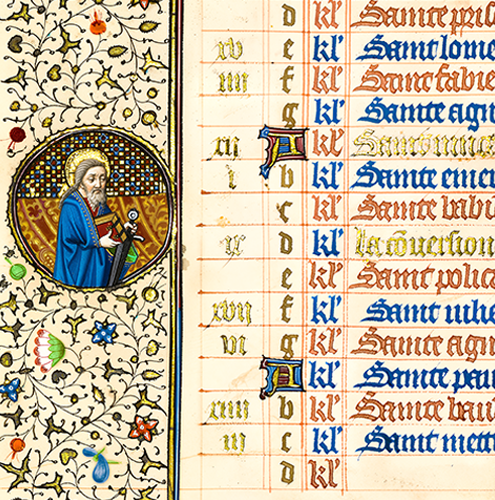 d kl' Sainte pris
xv e kl' Saint lome
iiij f kl' Saint fabie
g kl' Sainte agn
xij A kl' Saint vinca
i b kl' Sainte emer
c kl' Sainte babi
ix d kl' La cōuersion
e kl' Saint polica
xvij f kl' Saint iulie
vi g kl' Sainte agn
A kl' Saint pau
xiiij b kl' Sainte bau
iij c kl' Saint mett
d kl'